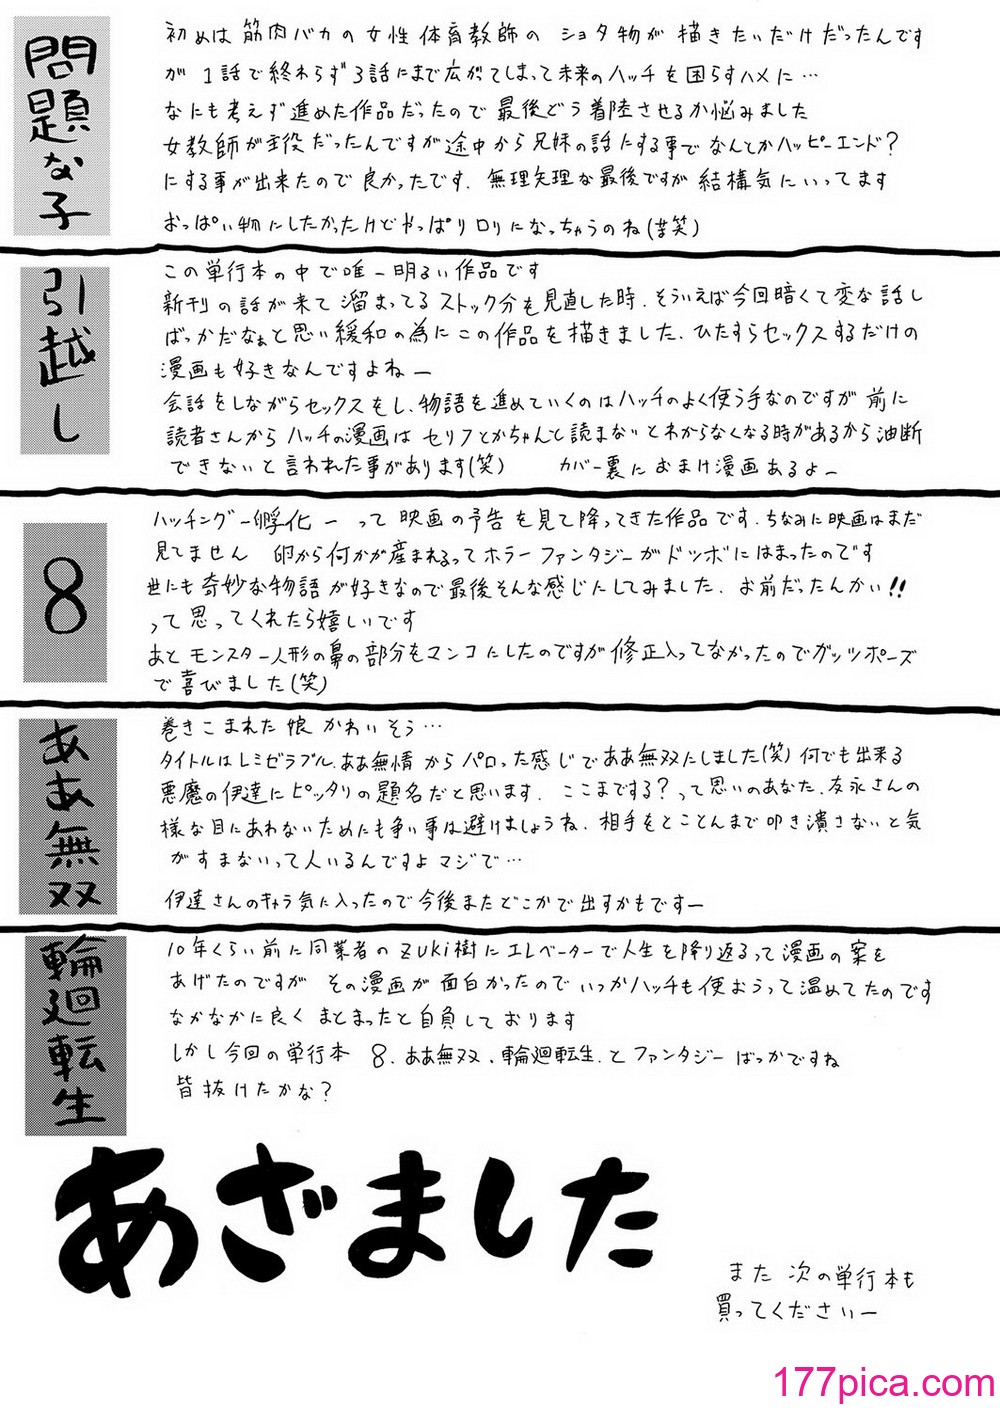 問題な子
初めは筋肉バカの女性体育教師の ショタ物が描きたいだけだったんです
が 1話で終わらず3話にまで広がってしまって未来のハッチを困らすハメに…
なにも考えず進めた作品だったので最後どう着陸させるか悩みました
女教師が主役だったんですが途中から兄妹の話にする事でなんとかハッピーエンド?
にする事が出来たので良かったです. 無理矢理な最後ですが結構気にいってます
おっぱい物にしたかったけどやっぱりロリになっちゃうのね(苦笑)
引越し
この単行本の中で唯一明るい作品です
新刊の話が来て溜まってるストック分を見直した時.そういえば今回暗くて変な話し
ばっかだなぁと思い緩和の為にこの作品を描きました.ひたすらセックスするだけの
漫画も好きなんですよねー
会話をしながらセックスをし.物語を進めていくのはハッチのよく使う手なのですが前に
読者さんからハッチの漫画はセリフとかちゃんと読まないとわからなくなる時があるから油断
できないと言われた事があります(笑) カバー裏におまけ漫画あるよー
8
ハッチングー孵化ー って映画の予告を見て降ってきた作品です.ちなみに映画はまだ
見てません 卵から何かが産まれるってホラーファンタジーがドツボにはまったのです
世にも奇妙な物語が好きなので最後そんな感じにしてみました.お前だったんかい!!
って思ってくれたら嬉しいです
あとモンスター人形の鼻の部分をマンコにしたのですが修正入ってなかったのでガッツポーズ
で喜びました(笑)
ああ無双
巻きこまれた娘かわいそう…
タイトルはレミゼラブル.ああ無情からパロった感じでああ無双にしました(笑)何でも出来る
悪魔の伊達にピッタリの題名だと思います.ここまでする?って思いのあなた.友永さんの
様な目にあわないためにも争い事は避けましょうね.相手をとことんまで叩き潰さないと気
がすまないって人いるんですよマジで…
伊達さんのキャラ気に入ったので今後またどこかで出すかもですー
輪廻転生
10年くらい前に同業者のZUKI樹にエレベーターで人生を降り返るって漫画の案を
あげたのですが その漫画が面白かったのでいつかハッチも使おうって温めてたのです
なかなかに良くまとまったと自負しております
しかし今回の単行本 8.ああ無双.輪廻転生.とファンタジーばっかですね
皆抜けたかな?
あざました
また次の単行本も
買ってくださいー
177pica.com